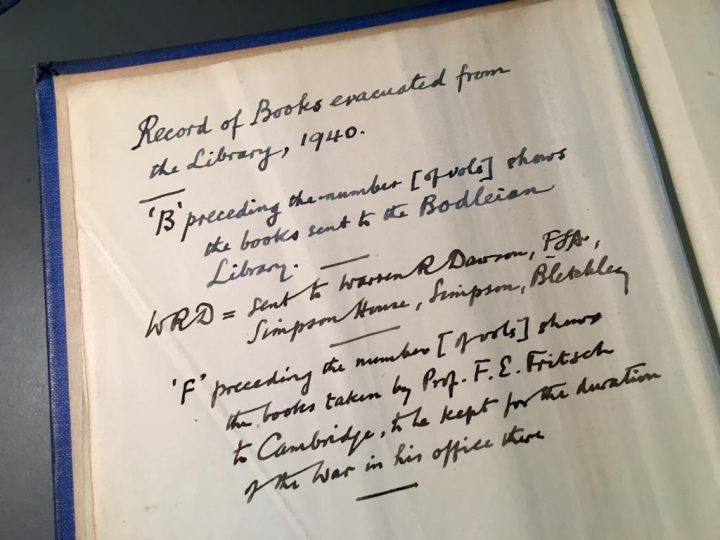 Record of Books evacuated from
the Library, 1940.
'B' preceding the number [of vols] shows
the books sent to the Bodleian
Library.
WRD = sent to Warren R Dawson, FSA.,
Simpson House, Simpson, Bletchley
'F' preceding the number [of vols] shows
the books taken by Prof. F. E. Fritsch
to Cambridge, to be kept for the duration
of the War in his office there